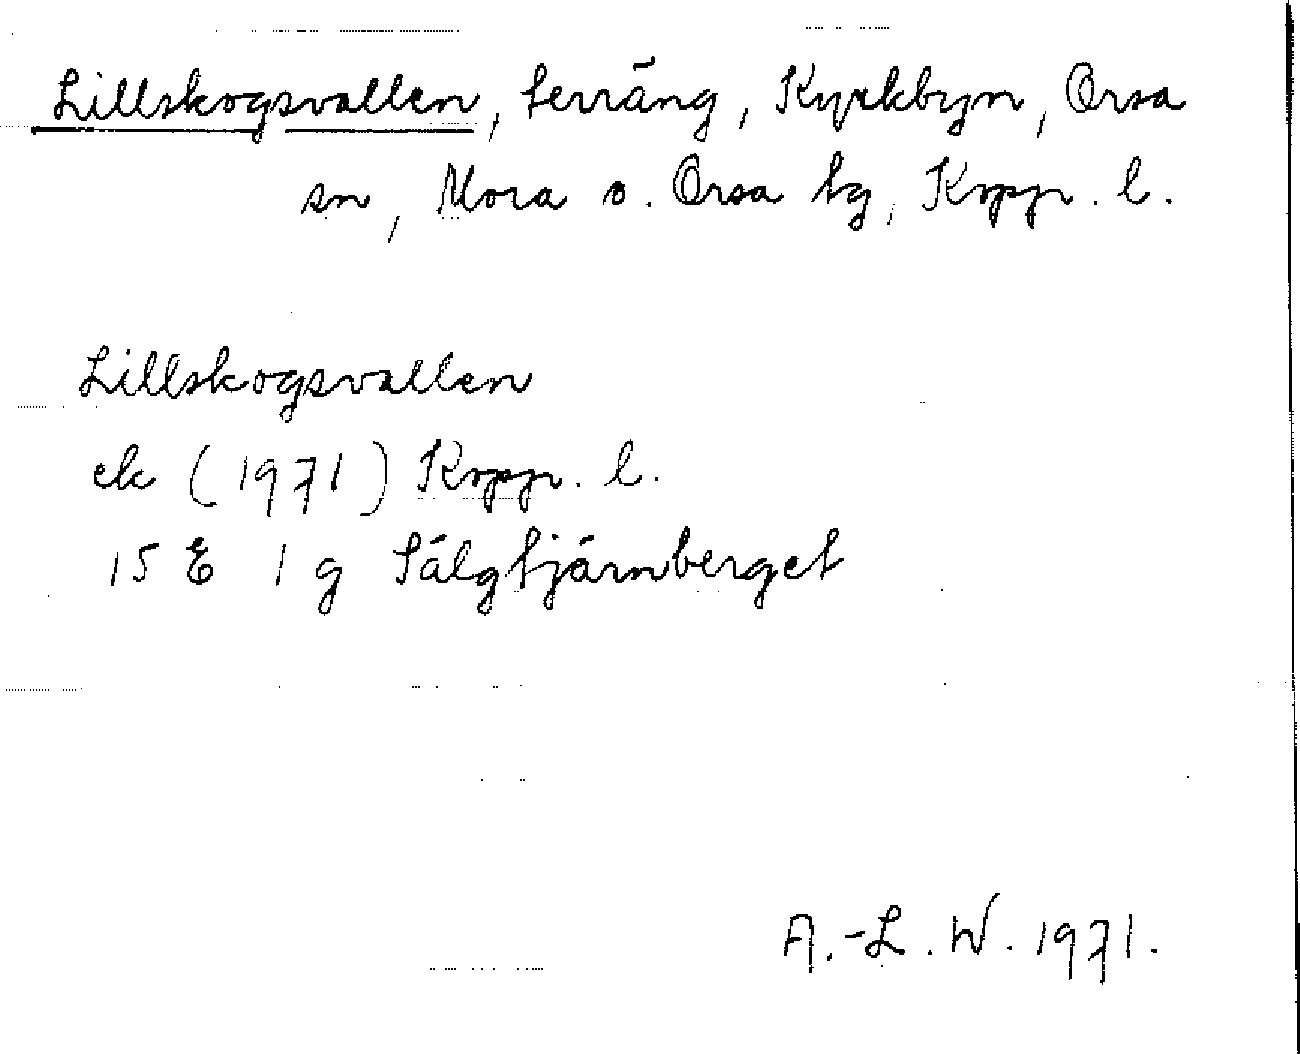 Lillskogsvallen, terräng, Kyrkbyn, Orsa
sn, Mora o. Orsa tg, Kopp. l.
Lillskogsvallen
ek (1971) Kopp. l.
15 E 1 g Sälgtjärnberget
A.-L. W. 1971.